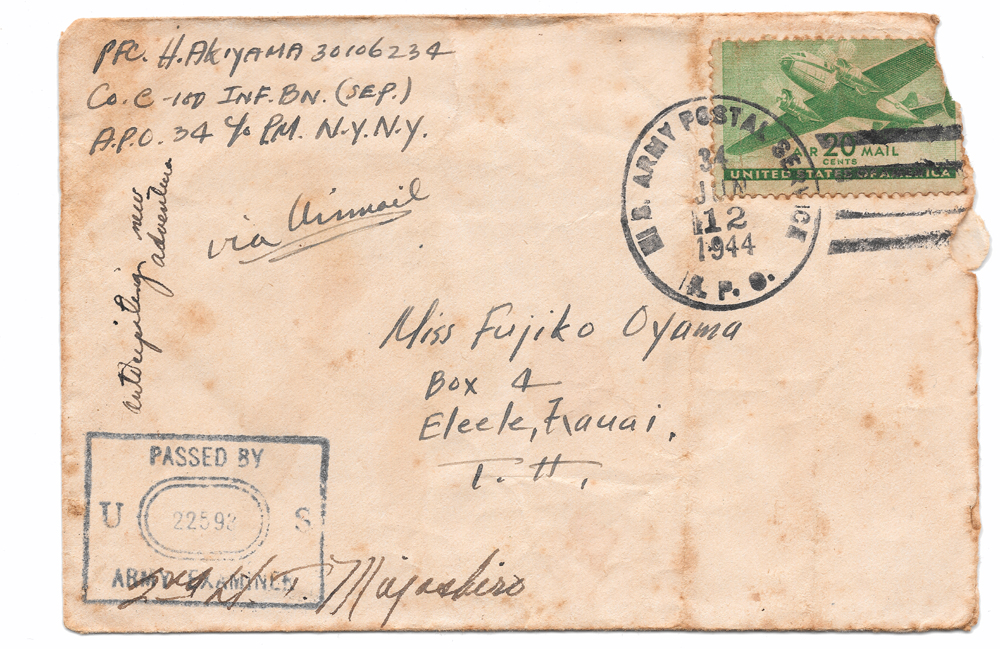 PFC. H. AKIYAMA 30106234
CO. C - 100 INF. BN. (SEP.)
A.P.O. 34 c/o P.M. N.Y. N.Y.
via Airmail
new
adventure
AIR 20 MAIL
CENTS
UNITED STATES OF AMERICA
U.S. ARMY POSTAL SERVICE
34
JUN
12
1944
A. P. O.
Miss Fujiko Oyama
Box 4
Eleele, Kauai,
T. H.
PASSED BY
U 22593 S
ARMY EXAMINER
Miyashiro